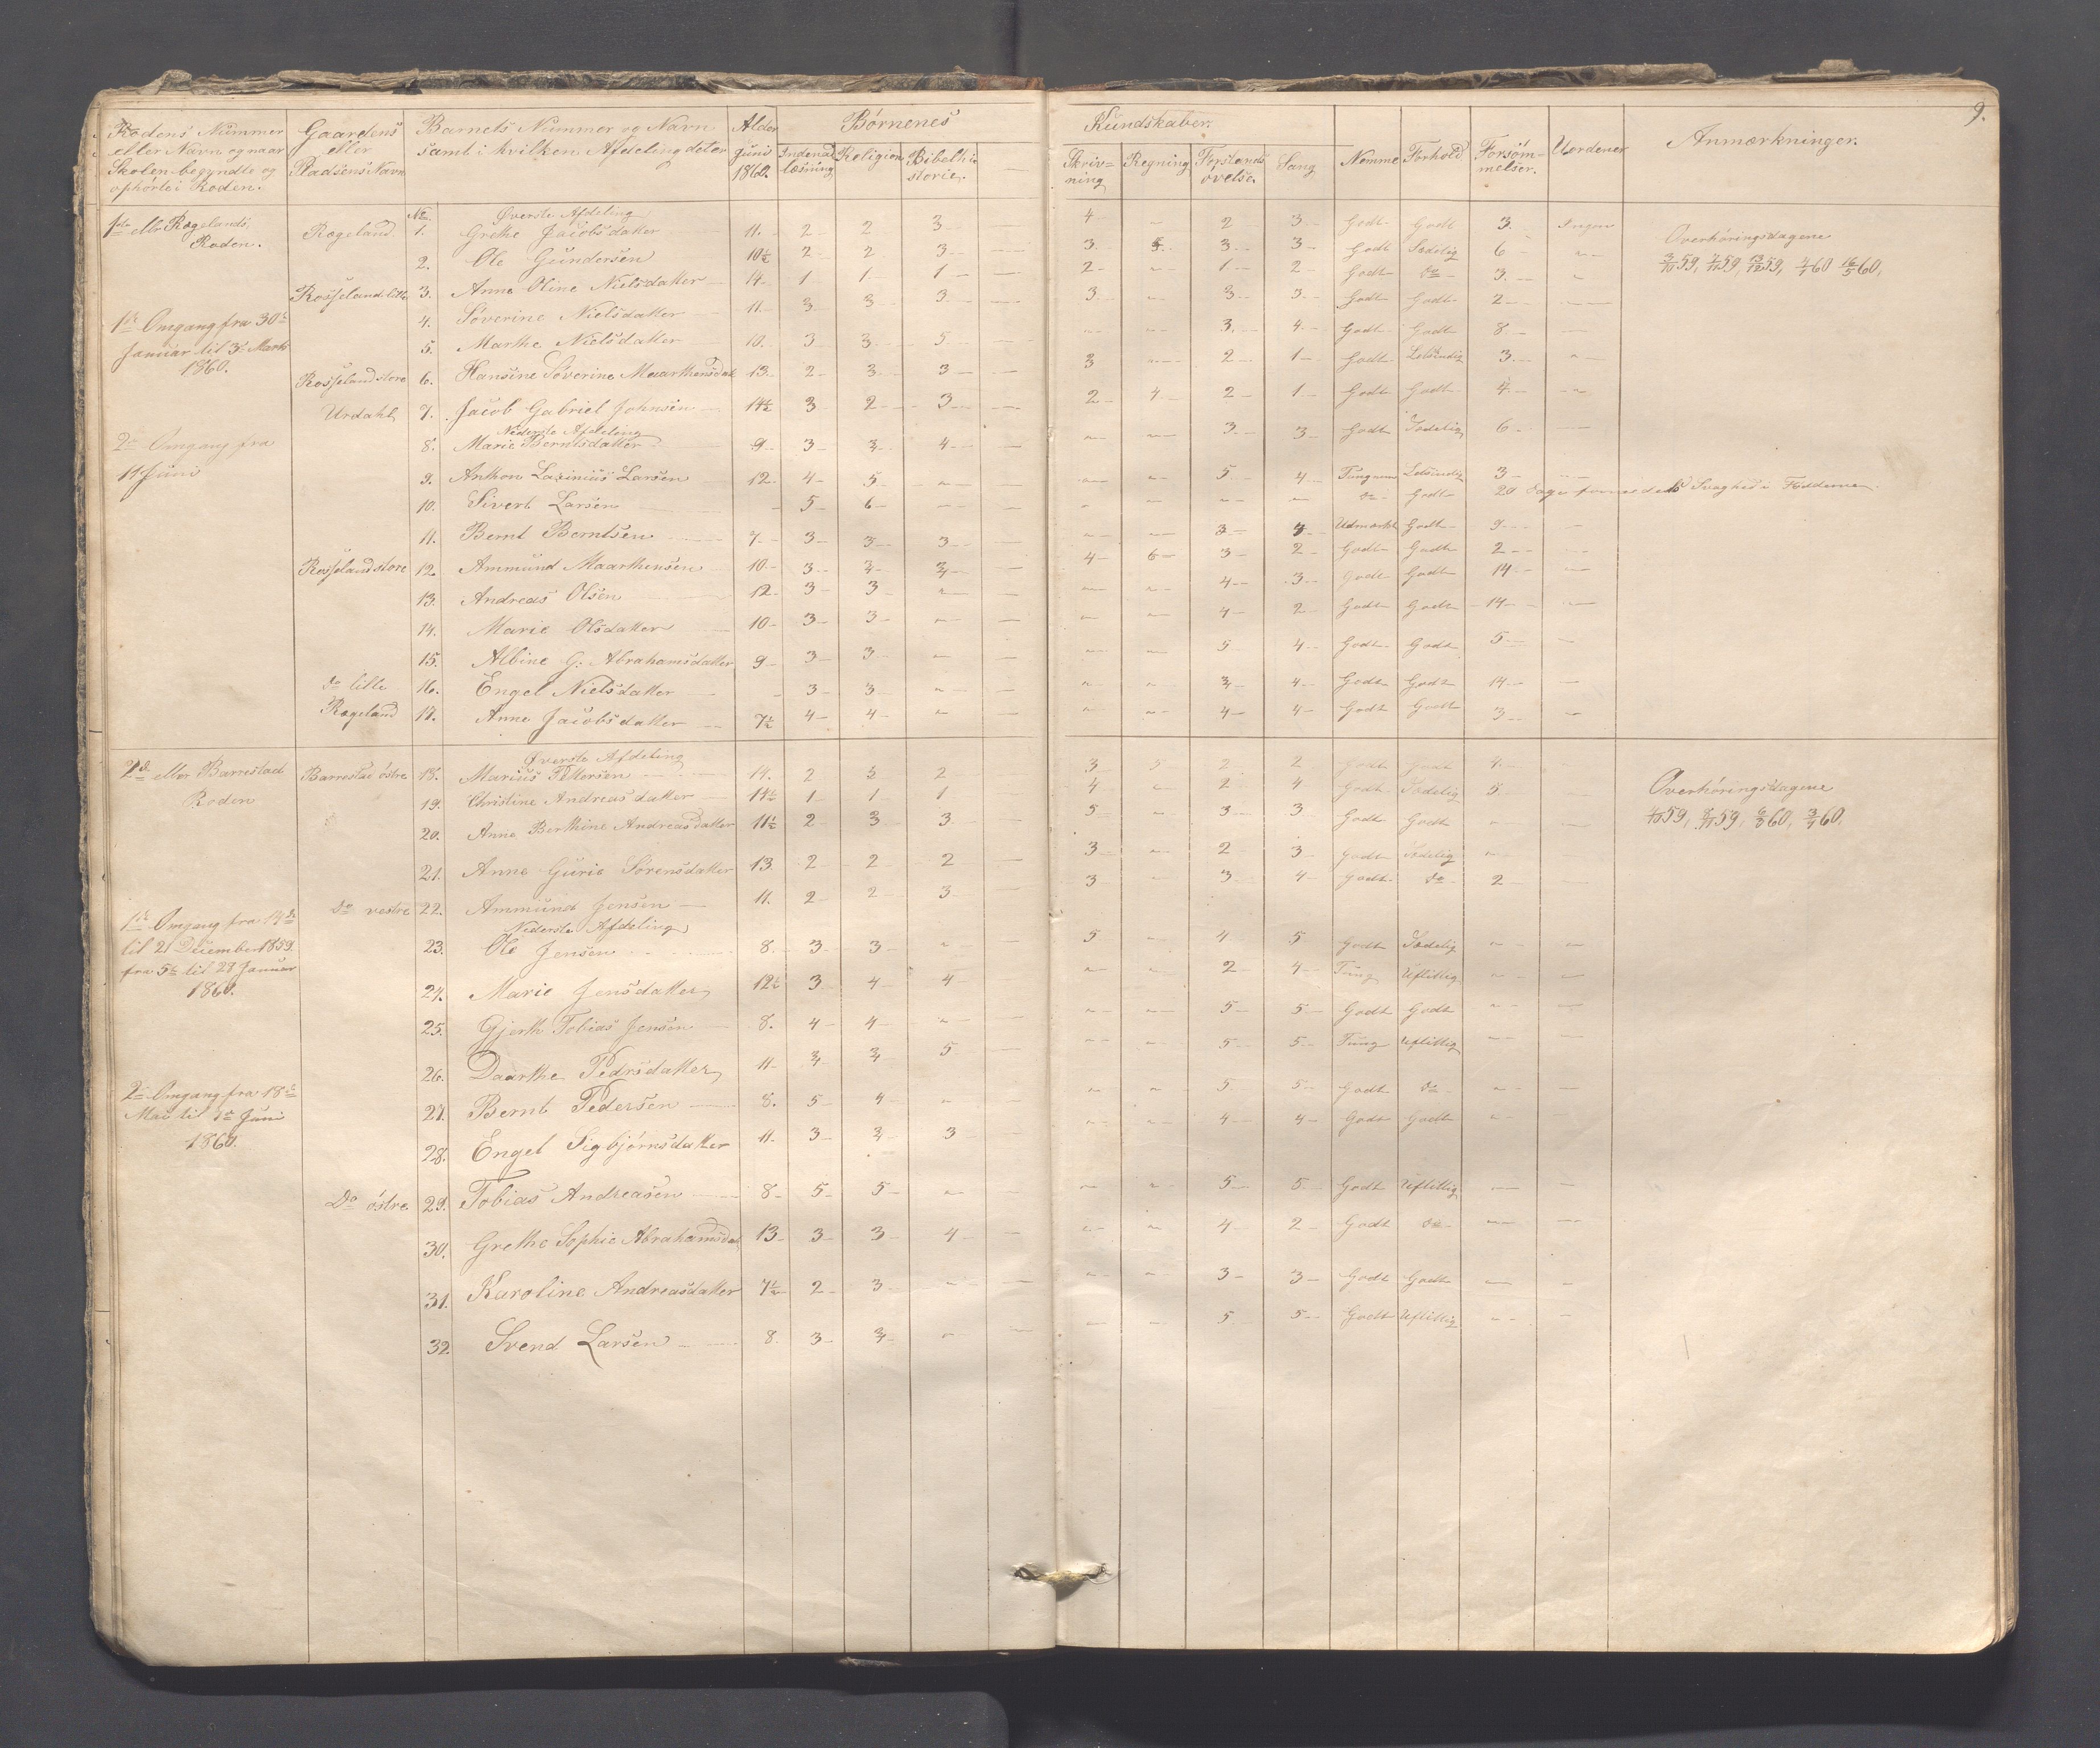 9.
Rodens Nummer eller Navn og naar Skolen begyndte og ophørte i Roden.
Gaardens eller Pladsens Navn
Barnets Nummer og Navn samt i hvilken Afdeling det er
Alder Juni 1860.
Børnenes Kundskaber.
Indenad læsning
Religion
Bibelhistorie.
Skrivning
Regning
Forstands øvelse
Sang
Nemme
Forhold
Forsømmelser.
Uordener
Anmærkninger.
1ste eller Rægelands Roden.
No.
Øverste Afdeling
Rægeland 1. Grethe Jacobsdatter 11. 2 2 3 4 " 2 3 Godt Godt 3. Ingen
Overhøringsdagene
2. Ole Gundersen 10½ 2 2 3 3 5 3 3 Godt Sædelig 6 "
Rosseland lille 3. Anne Oline Nielsdatter 14 1 1 1 2 " 1 2 Godt do 3 "
4. Søverine Nielsdatter 11. 3 3 3 3 " 3 3 Godt Godt 2
1ste Omgang fra 30te Januar til 3die Marts 1860.
5. Marthe Nielsdatter 10. 3 3 5 " " 3 4 Godt Godt 8
Rosseland store 6. Hansine Søverine Maarthensdat 13 2 3 3 3 " 2 1 Godt Letsindig 3 "
Urdahl 7. Jacob Gabriel Johnsen 14½ 3 2 3 2 4 2 1 Godt Godt 4 "
2den Omgang fra 11 Juni
Nederste Afdeling
8. Marie Berntsdatter 9 3 3/4 4 " " 3 3 Godt Sædelig 6
9. Anthon Larsen 12 4 5 " " " 5 4 Letsindig 3
10. Sivert Larsen 5 6 " " " " do Godt 20 Dage Svaghed i Fødderne.
11. Bernt Berntsen 7 3 3 3 " " 3 Udmærket Godt 9
Rosseland store 12. Ammund Maarthensen 10 3 3/4 3/4 4 6 3 2 Godt Godt 2
13. Andreas Olsen 12 3 3 " " " 4 3 Godt Godt 14
14. Marie Olsdatter 10 3 3 " " " 4 2 Godt Godt 14
15. Albine G. Abrahamsdatter 9 3 3 " " " 5 4 Godt Godt 5
do lille 16. Engel Nielsdatter 3 3 " " " 3/4 4 Godt Godt 14
Rægeland 17. Anne Jacobsdatter 7½ 4 4 " " " 4 4 Godt Godt 3
2den eller Barrestad Roden
Øverste Afdeling
Barrestad østre 18. Marius Pettersen 14. 2 2 3 5 2 2 Godt Godt 4
Overhøringsdagene
19. Christine Andreasdatter 14½ 1 1 1 4 " 2 4 Godt Sædelig 5
20. Anne Berthine Andreasdatter 11½ 2 3 3 5 " 3 3 Godt Godt "
21. Anne Gurie Sørensdatter 13 2 2 2 3 " 2 3 Godt Sædelig "
do vestre 22. Ammund Jensen 11. 2 2 3 3 " 3 4 Godt do 2
1ste Omgang fra 14de til 21 December 1859. fra 5te til 28 Januar 1860.
Nederste Afdeling
23. Ole Jensen 8. 3 3 " 5 " 4 5 Godt Sædelig "
24. Marie Jensdatter 12½ 3 4 4 " " 2 4 Tung Uflittig "
25. Gjerth Tobias Jensen 8. 4 4 " " " 5 5 Godt Godt "
26. Daarthe Pedersdatter 11 3/4 3/4 5 " " 5 5 Tung Uflittig "
2den Omgang fra 18de Mai til Juni 1860.
27. Bernt Pedersen 8. 5 4 " " " 5 5 Godt do "
28. Engel Sigbjørnsdatter 11. 3 3/4 3 " " 4 4 Godt Godt "
Do østre 29. Tobias Andreasen 8 5 5 " " " 5 5 Godt Uflittig
30. Grethe Sophie Abrahamsdat 13 3 3 4 " " 4 2 Godt do
31. Karoline Andreasdatter 7½ 2 3 " " " 3 3 Godt Godt
32. Svend Larsen 8. 3 3/4 " " " 5 5 Godt Uflittig "